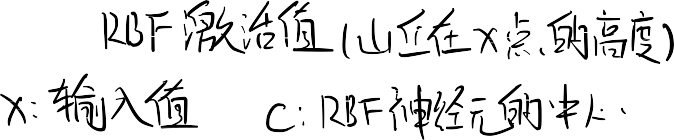 RBF激活值(山丘在x点的高度)
x: 输入值 C: RBF神经元的中心.